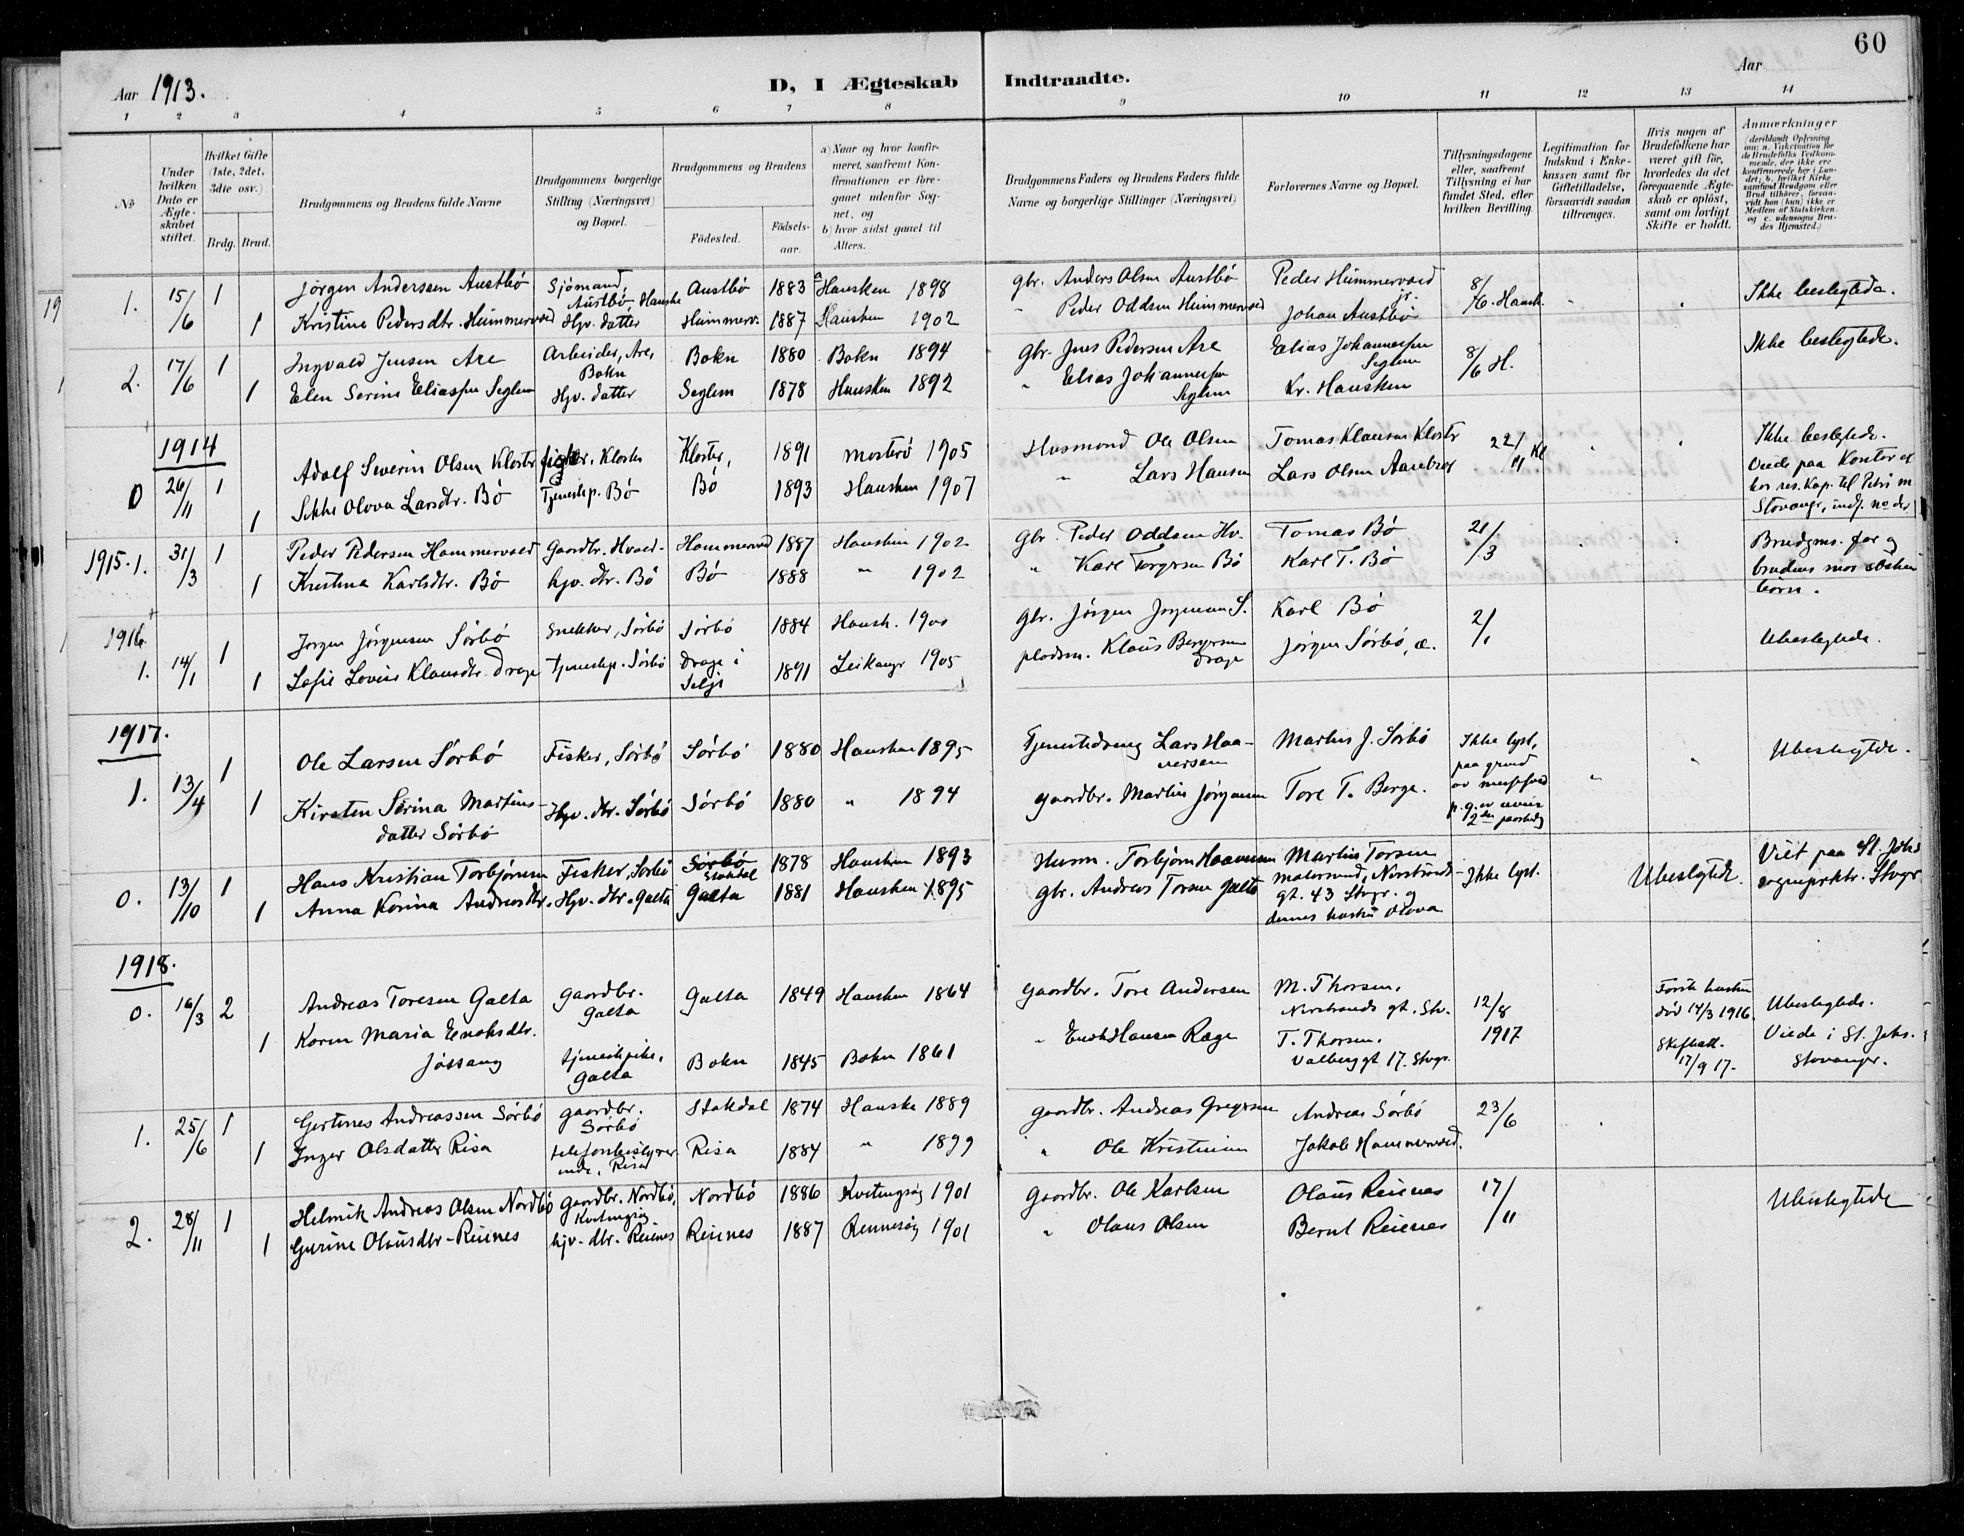 60
Aar 1913.
D, I Ægteskab Indtraadte.
Aar
1 2 3 4 5 6 7 8 9 10 11 12 13 14
No
Under hvilken Dato er Ægteskabet stiftet.
Hvilket Gifte (1ste, 2det, 3die osv.)
Brdg. Brud.
Brudgommens og Brudens fulde Navne
Brudgommens borgerlige Stilling (Næringsvei) og Bopæl.
Brudgommens og Brudens
Födested.
Födsels-aar.
a) Naar og hvor konfirmeret, saafremt Konfirmationen er foregaaet udenfor Sognet, og
b) hvor sidst gaaet til Alters.
Brudgommens Faders og Brudens Faders fulde Navne og borgerlige Stillinger (Næringsvei)
Forlovernes Navne og Bopæl.
Tillysningsdagene eller, saafremt Tillysning ei har fundet Sted, efter hvilken Bevilling.
Legitimation for Indskud i Enkekassen samt for Giftetilladelse, forsaavidt saadan tiltrænges.
Hvis nogen af Brudefolkene har været gift för, hvorledes da det foregaaende Ægteskab er oplöst, samt om lovligt Skifte er holdt.
Anmærkninger (deriblandt Oplysning om: a. Vakcination for de Brudefolks Vedkommende, der ikke ere konfirmerede her i Landet; b. hvilket Kirkesamfund Brudgom eller Brud tilhörer, forsaavidt han (hun) ikke er Medlem af Statskirken, og c. udensogns Brudes Hjemsted.)
1. 15/6 1 Jörgen Andersen Austbö Sjömand, Austbö Hauske Austbö 1883 a Hausken 1898 gbr. Anders Olsen Austbö Peder Hummervoed jr. 8/6. Hausk. Ikke beslegtede.
1 Kristine Pedersdtr. Hummervoed Hjv. datter Hummerv. 1887 Hausken 1902 " Peder Oddsen Hummervoed Johan Austbö
2. 17/6 1 Ingvald Jensen Are Arbeider, Are, Bokn Bokn 1880 Bokn 1894 Gbr. Jens Pedersen Are Elias Johannessen Seglem 8/6 H. Ikke beslegtede.
1 Elen Serine Eliassen Seglem Hjv. datter Seglem 1878 Hausken 1892 " Elias Johannessen Seglem Kr. Hausken
1914
0 26/11 1 Adolf Severin Olsen Kloster fisker, Kloster Kloster, 1891 Mosterö 1905 Husmand Ole Olsen Tomas Klausen Kloster 22/11 Kl Ikke beslegtede.
1 Sikke Olova Larsdtr. Bö Tjenestep. Bö Bö 1893 Hausken 1907 " Lars Hansen Lars Olsen Aarebrot Viede paa Kontoret hos res. Kap. til Petri m Stavanger, indf. no der
1915. 1. 31/3 1 Peder Pedersen Hommervoed Gaardbr. Hvoed Hommervoed 1887 Hausken 1902 Gbr. Peder Oddsen Hv. Tomas Bö 21/3 Brudgms. far og
1 Kristina Karlsdtr. Bö hjv. dtr. Bö Bö 1888 " 1902 " Karl Torgersen Bö Karl T. Bö brudens mor börn.
1916.
1. 14/1 1 Jörgen Jörgensen Sörbö Snekker, Sörbö Sörbö 1884 Hausk. 1900 Gbr. Jörgen Jörgensen S. Karl Bö 2/1 Ubeslegtede.
1 Sofie Lovise Klausdtr. Drage Tjenestep. Sörbö Drage i Selje 1891 Leikanger 1905 pladsm. Klaus Bergersen Drage Jörgen Sörbö, æ.
1917.
1. 13/4 1 Ole Larsen Sörbö Fisker, Sörbö Sörbö 1880 Hausken 1895 Tjenestedreng Lars Haaversen Martin J. Sörbö Ikke lyst, paa grund av Ubeslegtede.
1 Kirsten Serina Martins datter Sörbö Hjv. dtr. Sörbö Sörbö 1880 " 1894 gaardbr. Martin Jörgensen Tore T. Berge.
0. 13/10 1 Hans Kristian Torbjörnsen Fisker, Sörbö Sörbö Stokdal 1878 Hausken 1893 Husm. Torbjörn Haaversen Martin Torsen matersvend, Nordstrandsgt. 43 Stvgr. og dennes hustru Olova Ikke lyst. Ubeslegtede. Viet paa St. Johs sogneprktr. Stvgr
1 Anna Korina Andreasdtr. Hjv. dtr. Galta Galta 1881 Hausken 1895 gbr. Andreas Torsen Galta
1918.
0. 16/3 2 Andreas Toresen Galta gaardbr. Galta Galta 1849 Hausken 1864 Gaardbr. Tore Andersen M. Thorsen, gt. Stv. 12/8 1917 Förste hustru död 14/3 1916. Skifteatt. 17/9 17. Ubeslegtede. Viede i St. Johs. Stavanger.
1 Karen Maria Enoksdtr. Jössang tjenestepike, Galta Bokn 1845 Bokn 1861 " Enok Hansen Rage T. Thorsen, Valberggt 17. Stvgr.
1. 25/6 1 Gertines Andreassen Sörbö gaardbr. Sörbö Stokdal 1874 Hauske 1889 gaardbr. Andreas Gregersen Andreas Sörbö 23/6
1 Inger Olsdatter Risa telefonbestyrerinde, Risa Risa 1884 " 1899 " Ole Kristensen Jakob Hommervoed.
2. 28/11 1 Helmik Andreas Olsen Nordbö gaardbr. Nordbö, Kvitingsöy Nordbö 1886 Kvitingsöy 1901 Gaardbr. Ole Karlsen Olaus Reienes 17/11 Ubeslegtede
1 Gurine Olausdtr. Reienes hjv. dtr. Reienes Reienes 1887 Rennesöy 1901 " Olaus Olsen Bernt Reienes